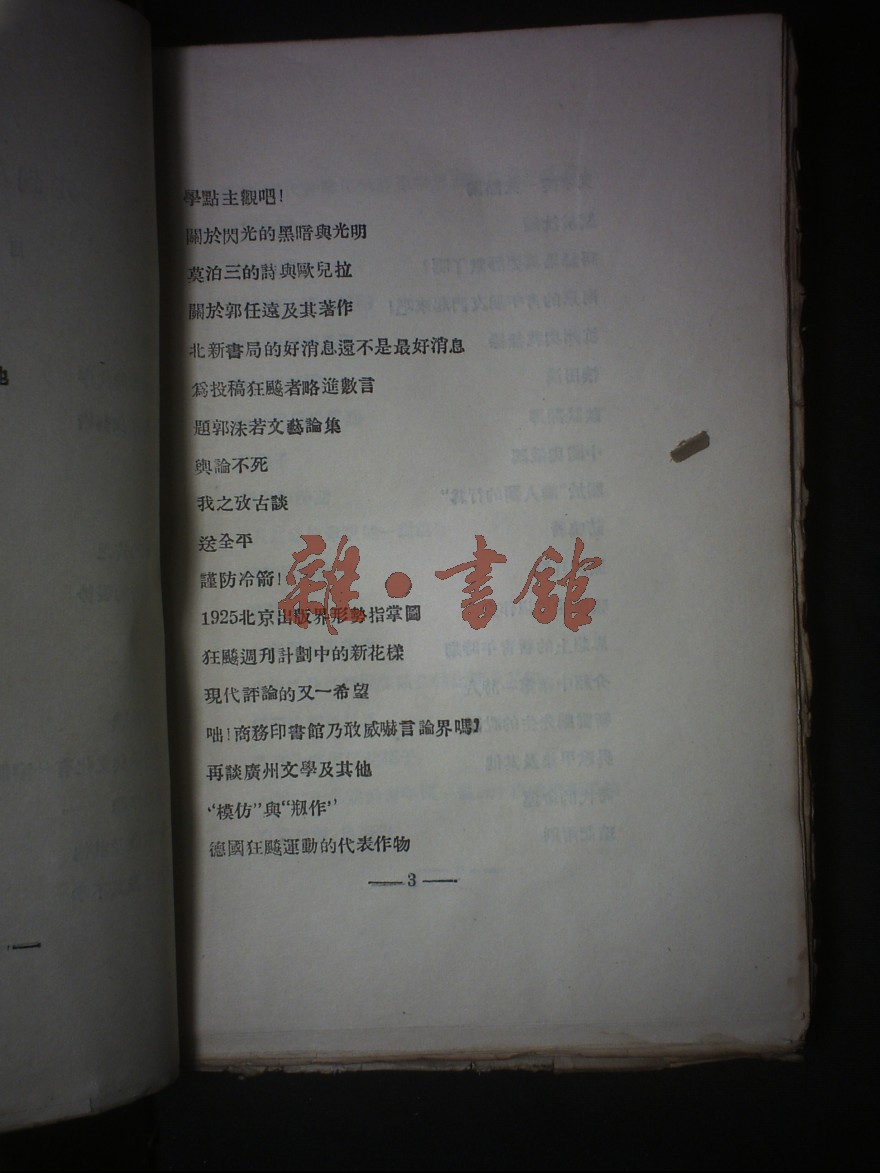 學點主觀吧!
關於閃光的黑暗與光明
莫泊三的詩與歐兒拉
關於郭任遠及其著作
北新書局的好消息還不是最好消息
爲投稿狂飈者略進數言
題郭沫若文藝論集
輿論不死
我之攷古談
送全平
謹防冷箭!
1925北京出版界形勢指掌圖
狂飈週刊計劃中的新花樣
現代評論的又一希望
咄!商務印書館乃敢威嚇言論界嗎
再談廣州文學及其他
“模仿”與“瓶作”
德國狂飈運動的代表作物
— 3 —
雜·書館